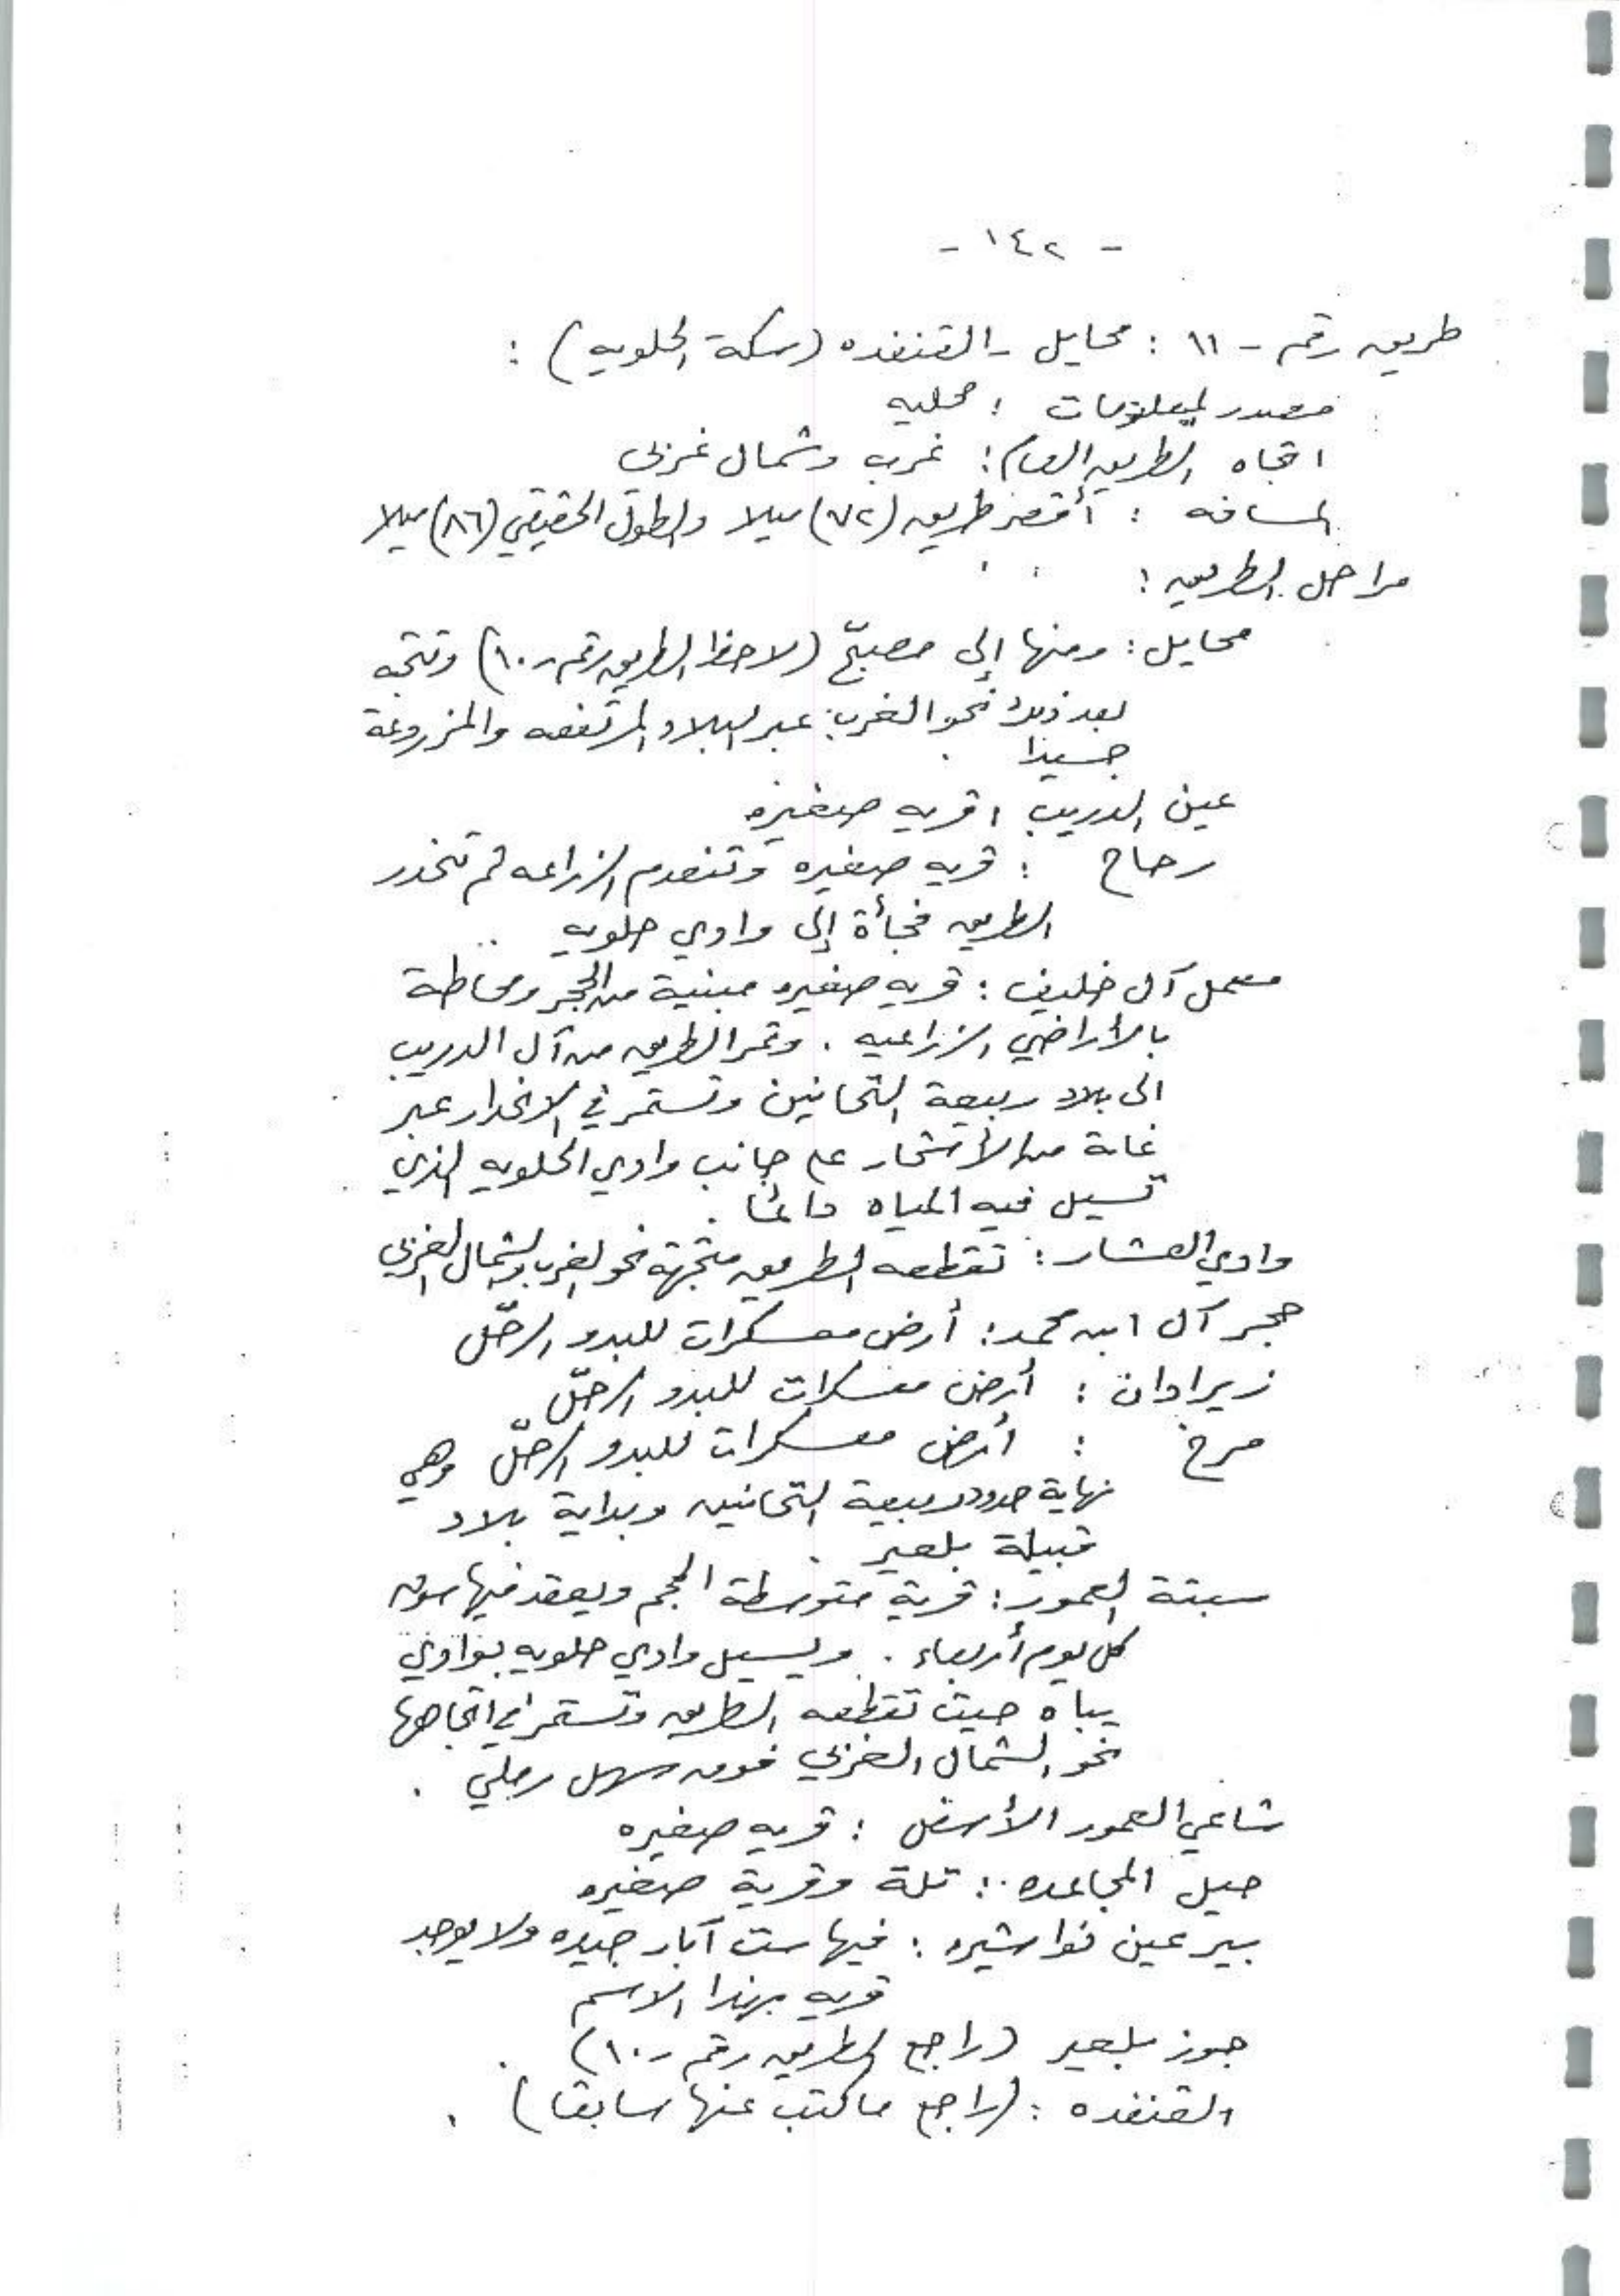 - ١٤٢ -
طريق رقم - ١١ : محايل - القنفده (سكة الحلويه) :
مصدر المعلومات : محليه
اتجاه الطريق العام : غرب وشمال غربي
المسافه : أقصر طريق (٧٢) ميلا والطول الحقيقي (٨٦) ميلا
مراحل الطريق :
محايل : ومنها إلى مصبّح (لاحظ الطريق رقم - ١٠) وتتجه
بعد ذلك نحو الغرب عبر البلاد المرتفعه والمزروعة
جيدا
عين الدريب : قريه صغيره
رحاح : قريه صغيره وتنعدم الزراعه ثم تنحدر
الطريق فجأة إلى وادي حلويه ..
معمل آل خليف : قريه صغيره مبنية من الحجر ومحاطة
بالأراضي الزراعيه . وتمر الطريق من آل الدريب
الى بلاد ربيعة التحانين وتستمر في الانحدار عبر
غابة من الأشجار على جانب وادي الحلويه الذي
تسيل فيه المياه دائما .
وادي العشار : تقطعه الطريق متجهة نحو الغرب والشمال الغربي
حجر آل ابن محمد : أرض معسكرات للبدو الرحّل
زيرادان : أرض معسكرات للبدو الرحّل
مرخ : أرض معسكرات للبدو الرحّل وهي
نهاية حدود ربيعة التحانين وبداية بلاد
قبيلة بلعير .
سبتة العمور : قرية متوسطة الحجم ويعقد فيها سوق
كل يوم أربعاء . ويسيل وادي حلويه بوادي
يباه حيث تقطعه الطريق وتستمر في اتجاهها
نحو الشمال الغربي فوق سهل رملي .
شاعي العمور الأسفل : قريه صغيره
جبل المجاعده : تلة وقرية صغيره
بير عين نواشيره : فيها ست آبار جيده ولا يوجد
قريه بهذا الاسم
جوز بلعير (راجع الطريق رقم - ١٠) .
القنفده : (راجع ما كتب عنها سابقا) .